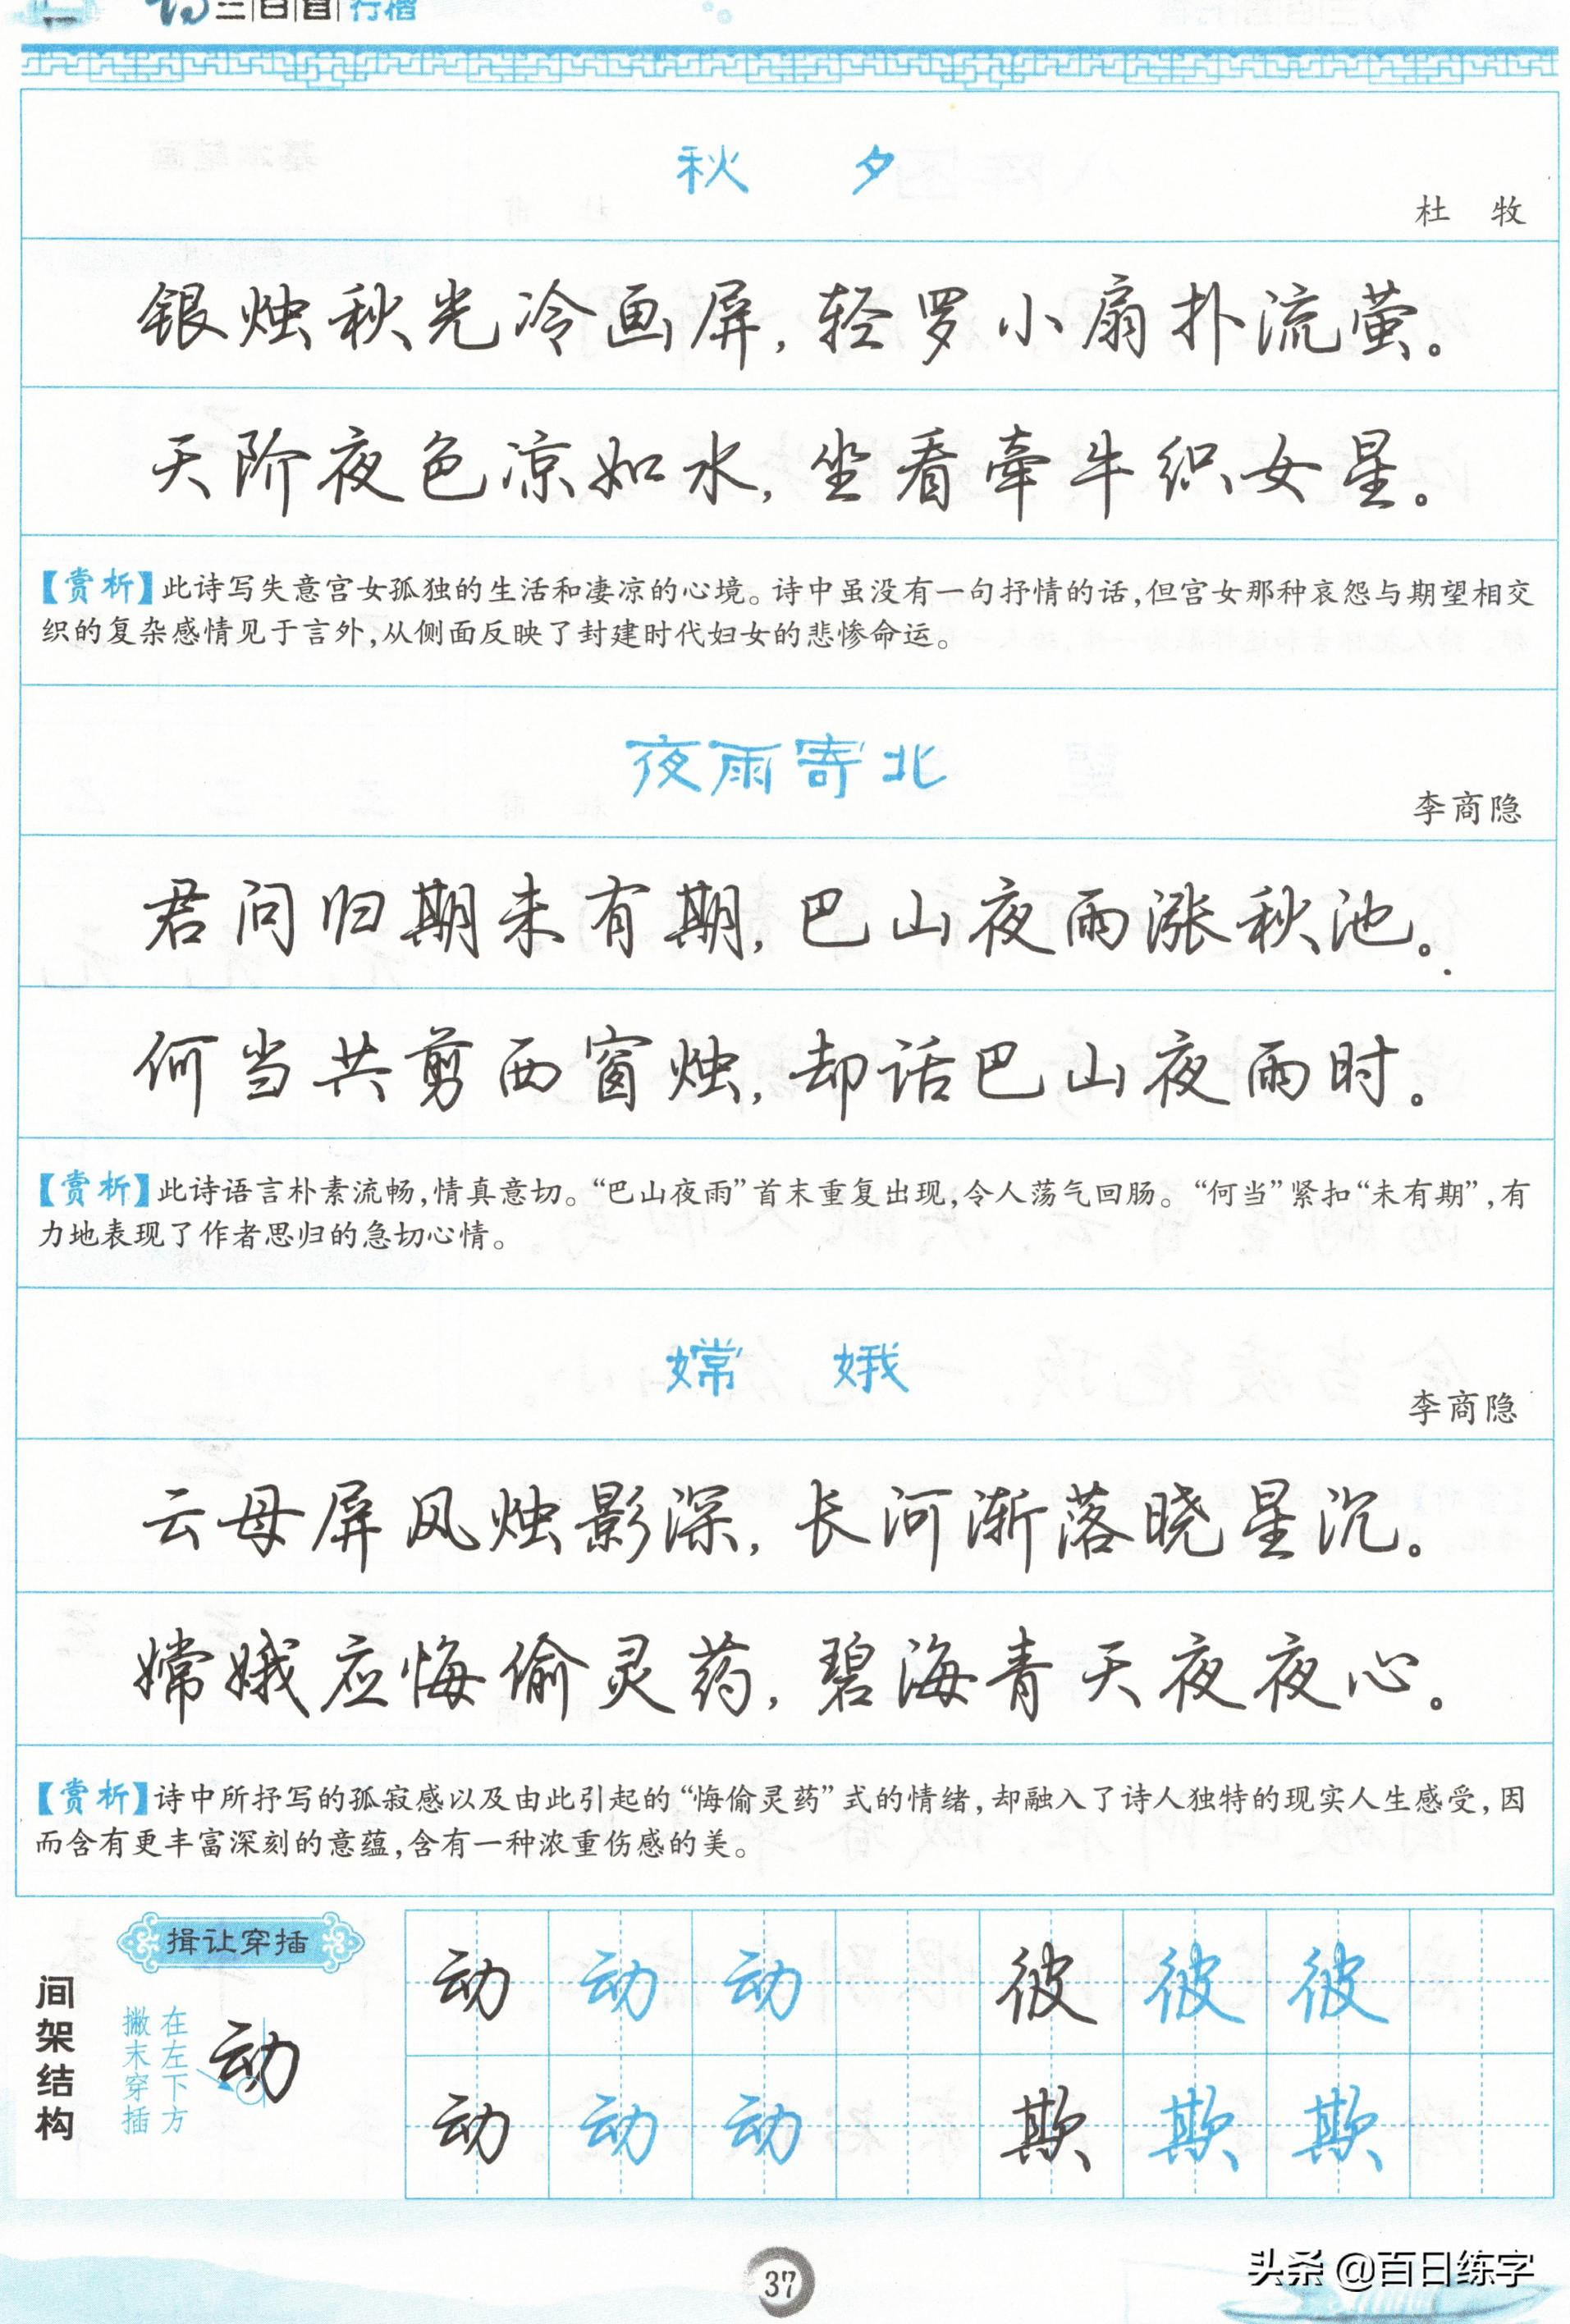 诗三百首行楷
秋 夕
杜 牧
银烛秋光冷画屏,轻罗小扇扑流萤。
天阶夜色凉如水,坐看牵牛织女星。
【赏析】此诗写失意宫女孤独的生活和凄凉的心境。诗中虽没有一句抒情的话,但宫女那种哀怨与期望相交
织的复杂感情见于言外,从侧面反映了封建时代妇女的悲惨命运。
夜雨寄北
李商隐
君问归期未有期,巴山夜雨涨秋池。
何当共剪西窗烛,却话巴山夜雨时。
【赏析】此诗语言朴素流畅,情真意切。“巴山夜雨”首末重复出现,令人荡气回肠。“何当”紧扣“未有期”,有
力地表现了作者思归的急切心情。
嫦 娥
李商隐
云母屏风烛影深,长河渐落晓星沉。
嫦娥应悔偷灵药,碧海青天夜夜心。
【赏析】诗中所抒写的孤寂感以及由此引起的“悔偷灵药”式的情绪,却融入了诗人独特的现实人生感受,因
而含有更丰富深刻的意蕴,含有一种浓重伤感的美。
间架结构
揖让穿插
在左下方
撇末穿插
动
动 动 动 彼 彼 彼
动 动 动 欺 欺 欺
37
头条 @百日练字